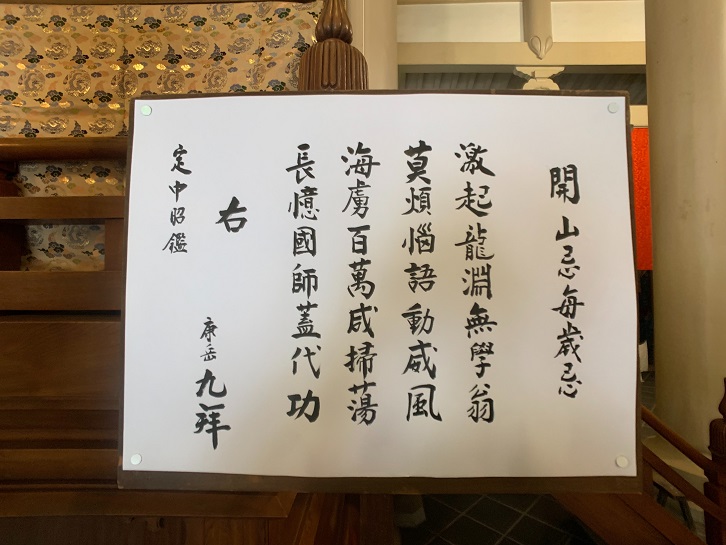 開山忌毎歳忌
激起龍淵無學翁
莫煩惱語動威風
海虜百萬咸掃蕩
長憶國師蓋代功
右
定中昭鑑
康岳九拜